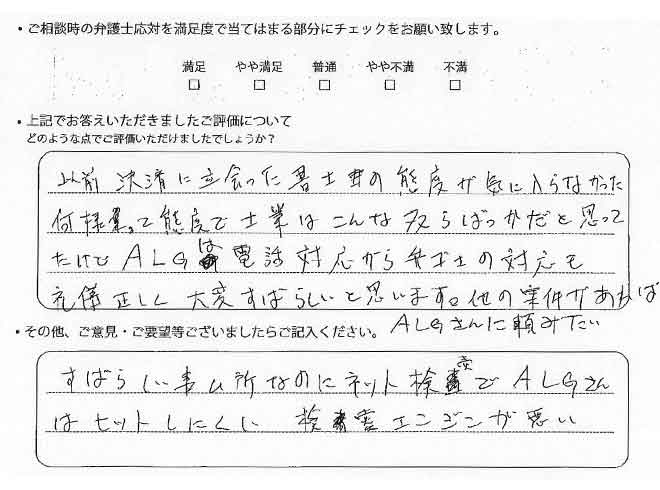 ・ご相談時の弁護士応対を満足度で当てはまる部分にチェックをお願い致します。
満足 やや満足 普通 やや不満 不満
□ □ □ □ □
・上記でお答えいただきましたご評価について
どのような点でご評価いただけましたでしょうか?
以前決済に立会った書士の態度が気に入らなかった
何様って態度で士業はこんな奴らばっかだと思って
たけど ALGは電話対応から弁ゴ士の対応も
礼儀正しく大変すばらしいと思います。他の案件があれば
ALGさんに頼みたい
・その他、ご意見・ご要望等ございましたらご記入ください。
すばらしい事ム所なのにネット検索でALGさん
はヒットしにくい 検索エンジンが悪い